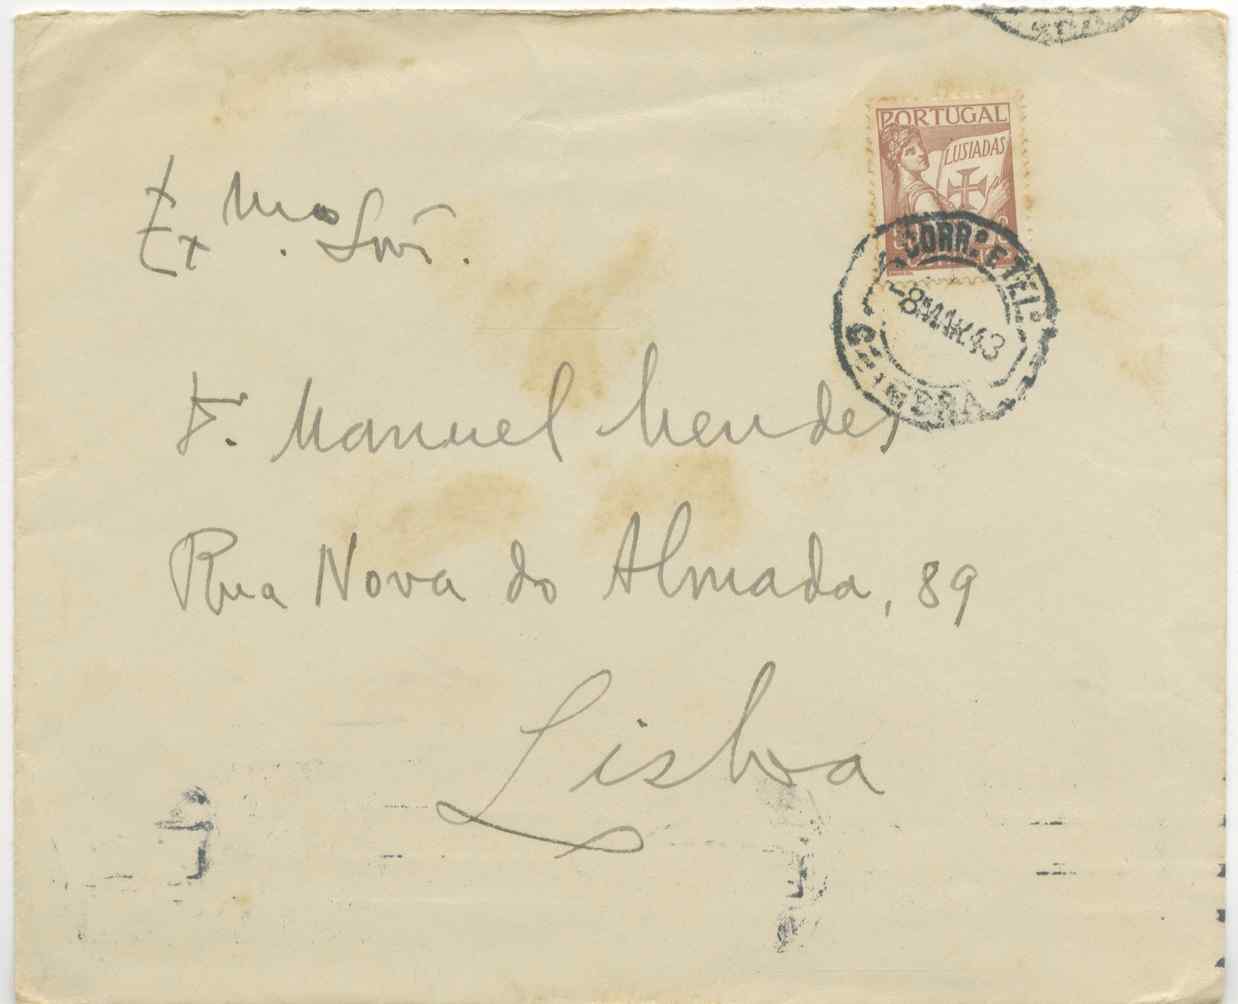 PORTUGAL
LUSIADAS
CORR.º E TEL.º
-8 MAR 43
Ex.mo Snr.
D. Manuel Mendes
Rua Nova do Almada, 89
Lisboa